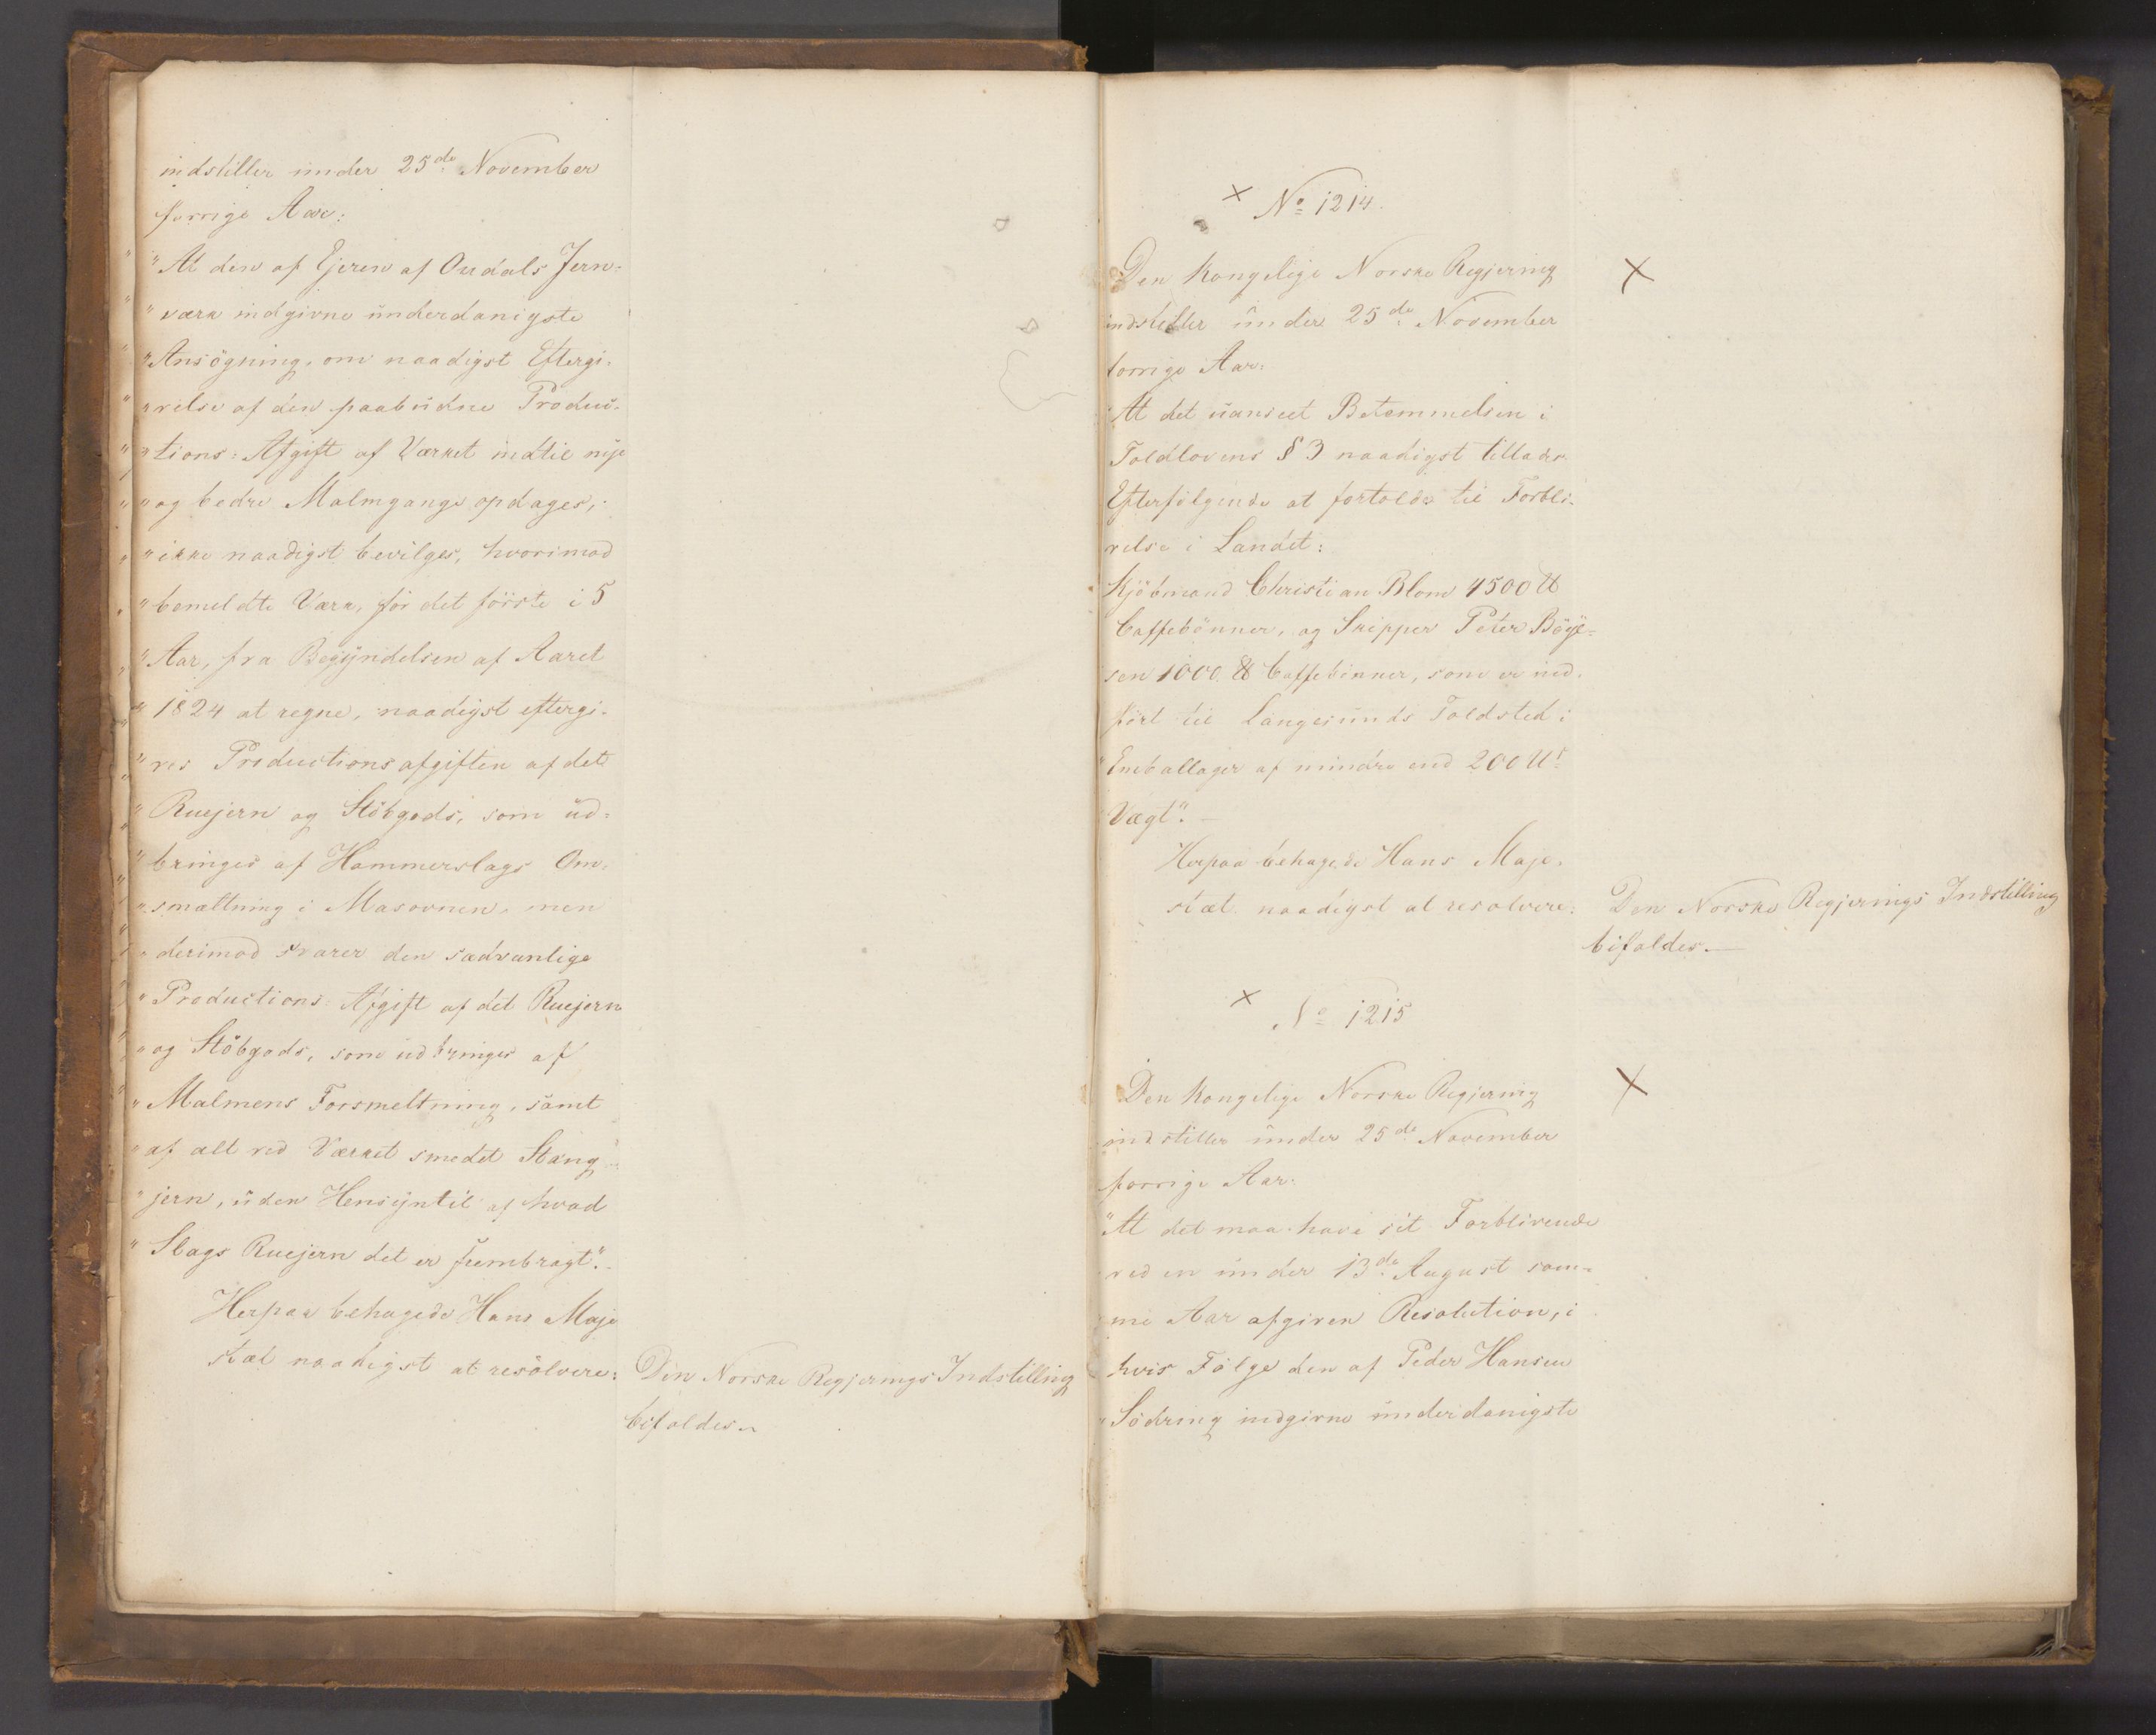 indstiller under 25de November
forrige Aar:
"At den af Ejeren af Oudals Jern-
"værk indgivne underdanigste
"Ansögning, om naadigst Eftergi-
"velse af den paabudne Produc-
"tions-Afgift af Værket indtil nye
"og bedre Malmgange opdages,
"ikke naadigst bevilges, hvorimod
"bemeldte Værk, for det förste i 5
"Aar, fra Begyndelsen af Aaret
"1824 at regne, naadigst eftergi-
"ves Productionsafgiften af det
"Ruejern og Stöbgods, som ud-
"bringes af Hammerslags Om-
"smæltning i Masovnen, men
"derimod svarer den sædvanlige
"Productions-Afgift af det Ruejern
"og Stöbgods, som udbringes af
"Malmens Forsmeltning, samt
"af alt ved Værket smedet Stang-
"jern, uden Hensyn til af hvad
"Slags Ruejern det er frembragt".
Herpaa behagede Hans Maje
stæt naadigst at resolvere:
Den Norske Regjerings Indstilling
bifaldes.
× No 1214.
Den Kongelige Norske Regjering ×
indstiller under 25de November
forrige Aar:
"At det uanseet Bestemmelsen i
Toldlovens § 3 naadigst tillades
Efterfölgende at fortolde til Forbli-
velse i Landet:
Kjöbmand Christian Blom 4500 ℔
Caffebönner, og Skipper Peter Böye-
sen 1000 ℔ Caffebönner, som er ind-
fört til Langesunds Toldsted i
"Emballager af mindre end 200 ℔s
Vægt". —
Herpaa behagede Hans Maje-
stæt naadigst at resolvere:
Den Norske Regjerings Indstilling
bifaldes. —
× No 1215
Den Kongelige Norske Regjering ×
indstiller under 25de November
forrige Aar:
"At det maa have sit Forblivende
ved en under 13de August sam-
me Aar afgiven Resolution, i
hvis Fölge den af Peder Hansen
"Södring indgivne underdanigste